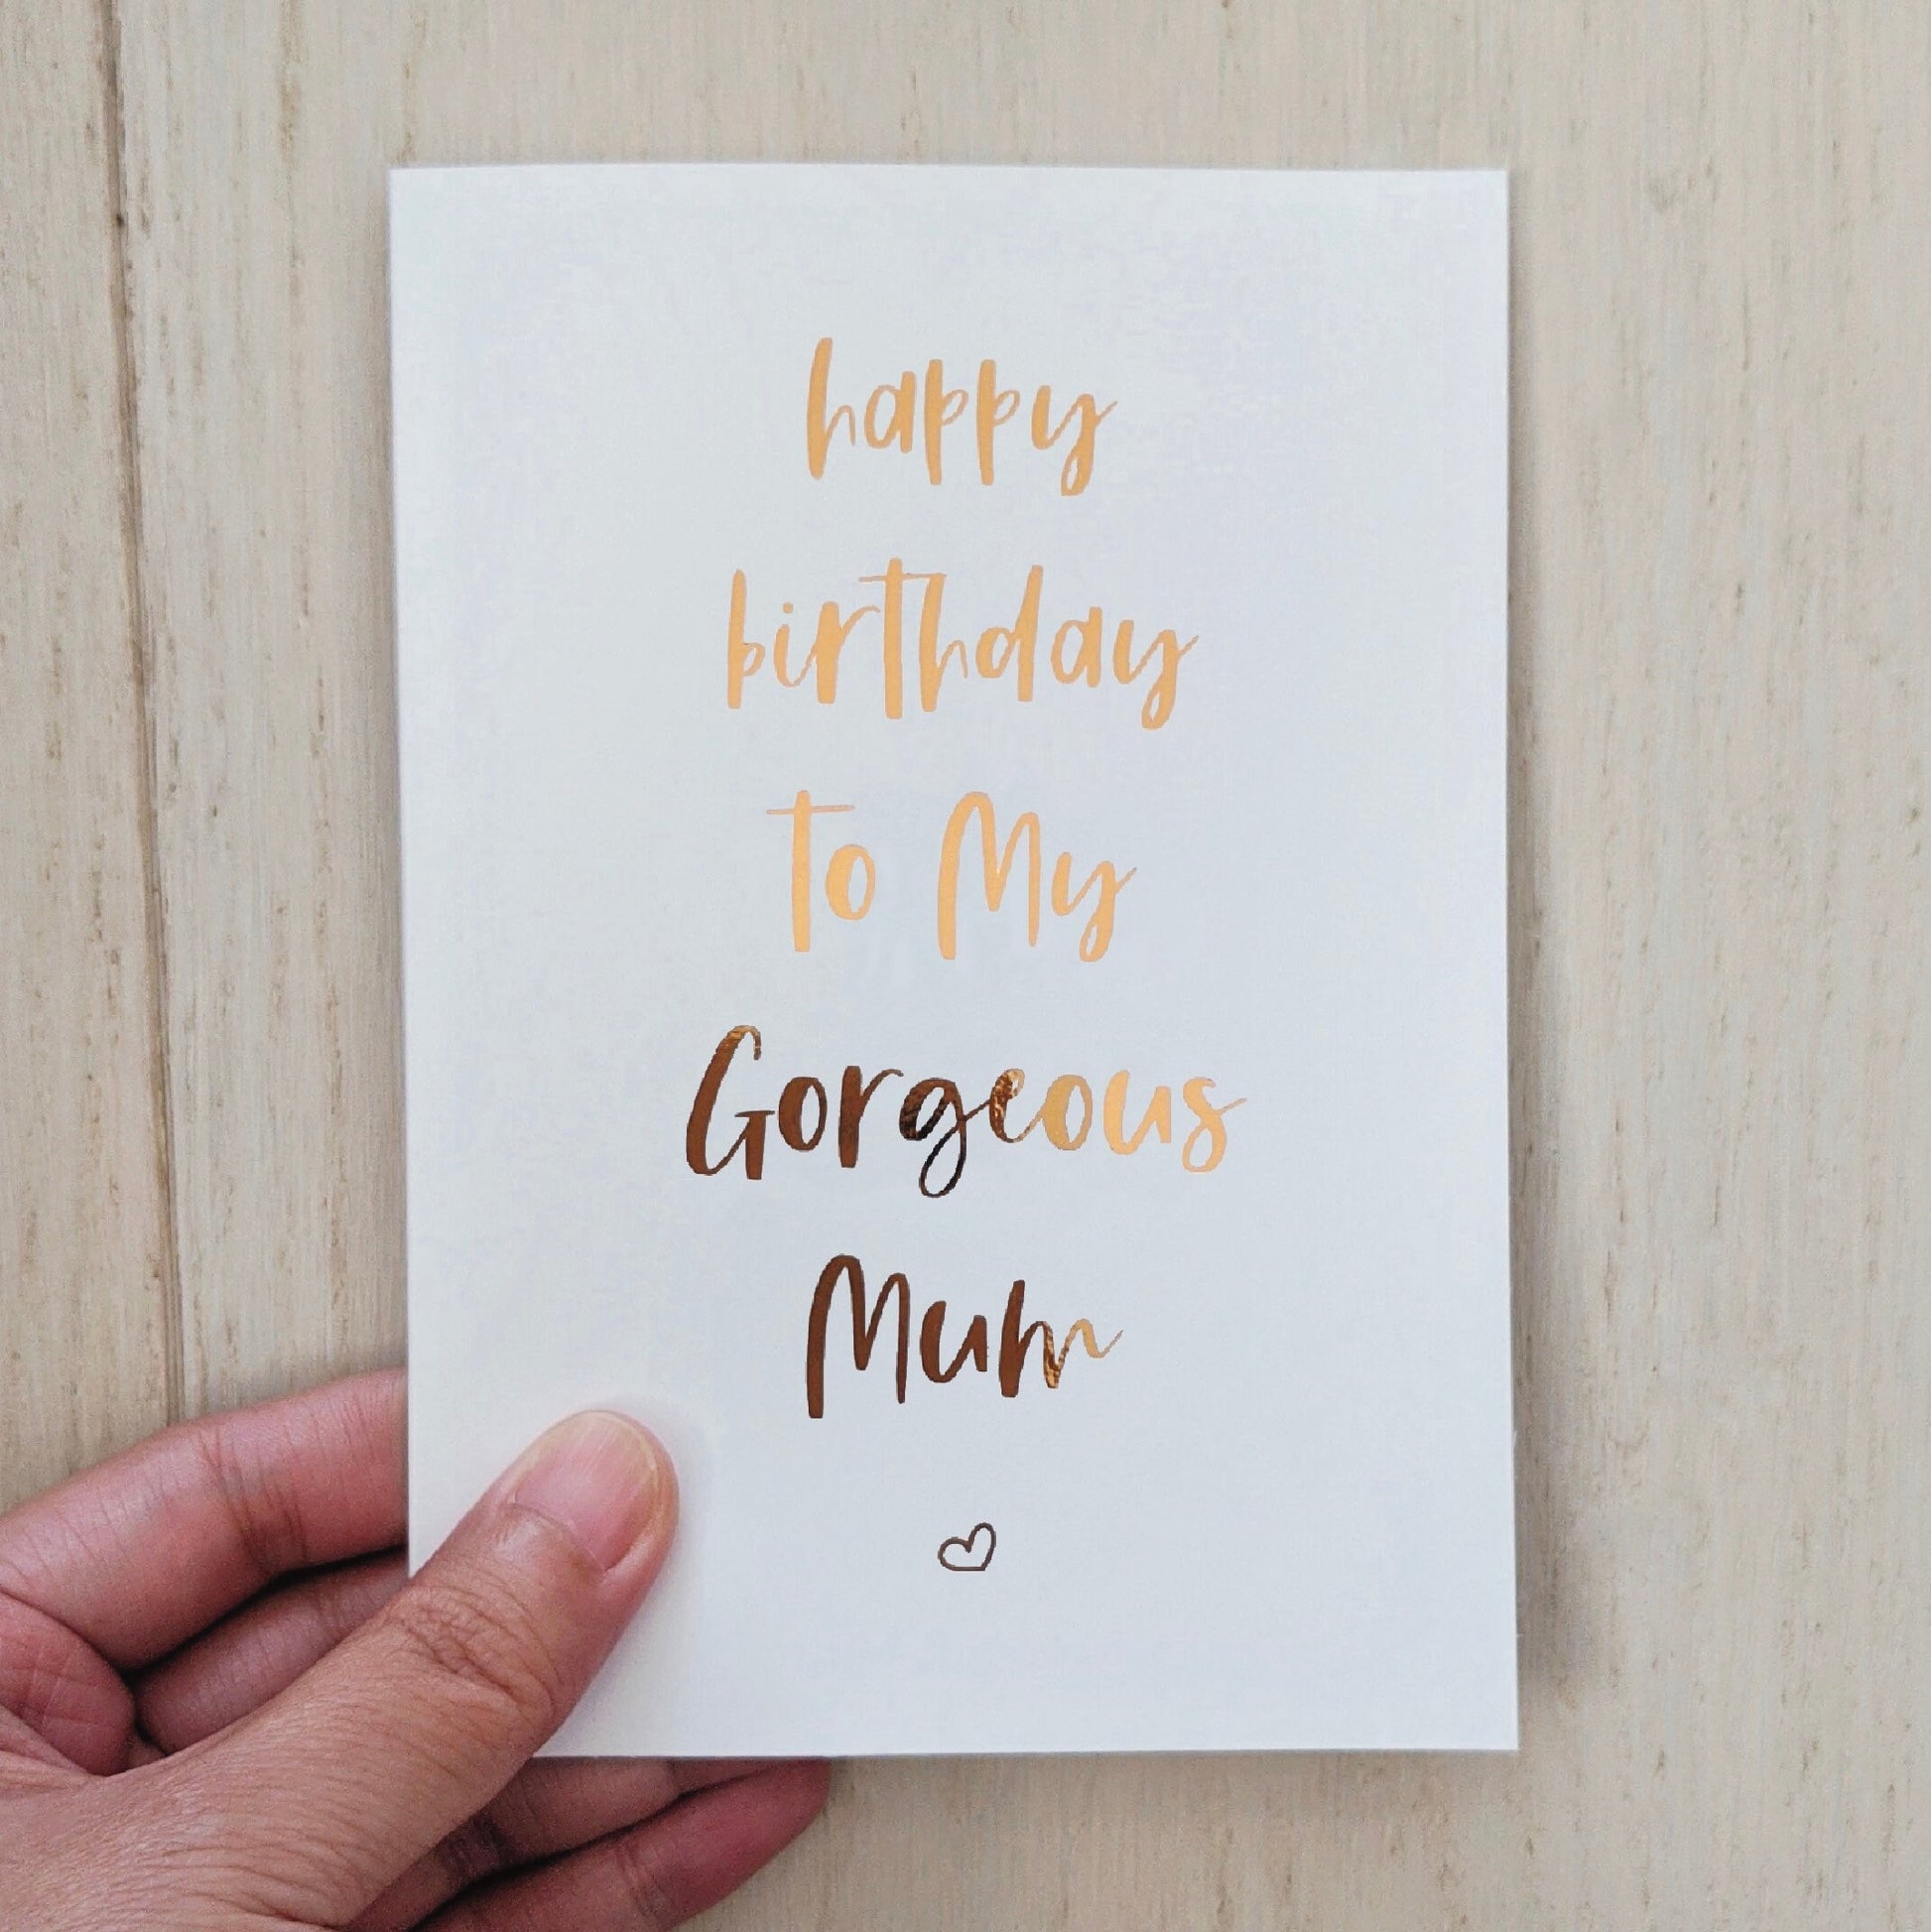 happy
birthday
to My
Gorgeous
Mum